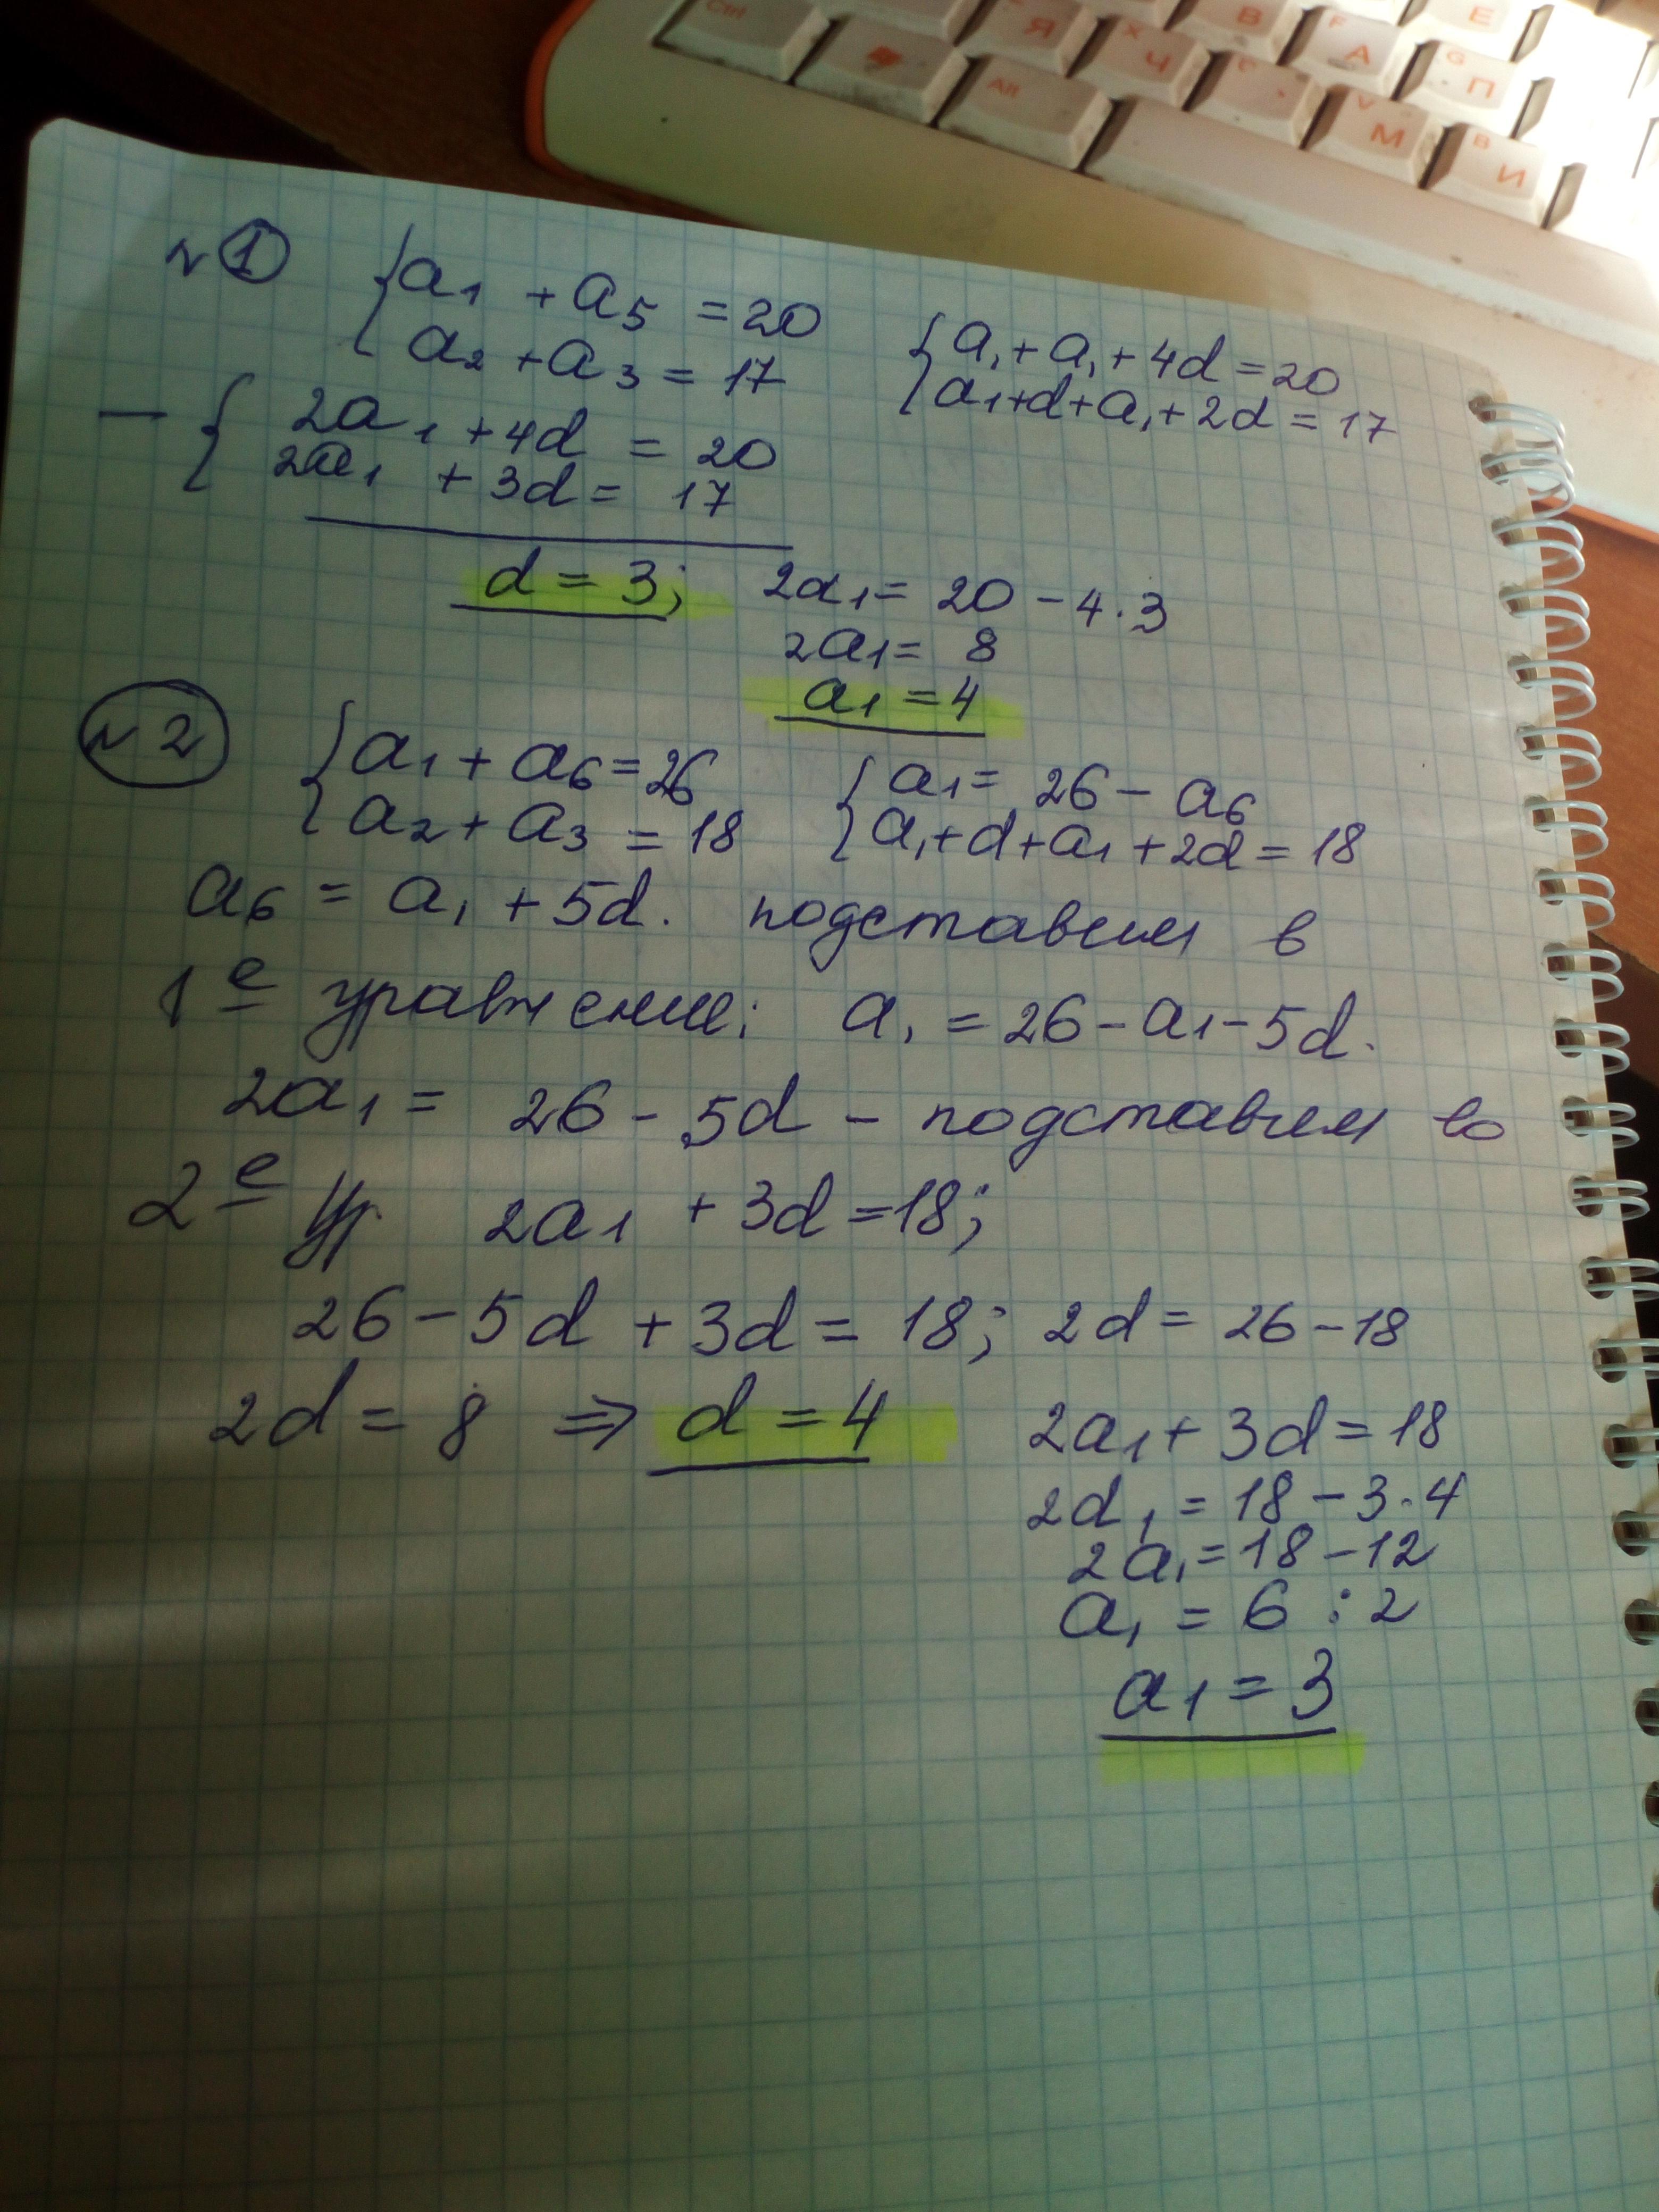 Ctrl Я X Ч C В F А G П Е
Alt V М B И
N 1 { a1 + a5 = 20
a2 + a3 = 17
{ a1 + a1 + 4d = 20
a1 + d + a1 + 2d = 17
— { 2a1 + 4d = 20
2a1 + 3d = 17
d = 3; 2a1 = 20 - 4·3
2a1 = 8
a1 = 4
N 2 { a1 + a6 = 26
a2 + a3 = 18
{ a1 = 26 - a6
a1 + d + a1 + 2d = 18
a6 = a1 + 5d. подставим в
1е уравнение: a1 = 26 - a1 - 5d.
2a1 = 26 - 5d - подставим во
2е ур 2a1 + 3d = 18;
26 - 5d + 3d = 18; 2d = 26 - 18
2d = 8 ⇒ d = 4
2a1 + 3d = 18
2a1 = 18 - 3·4
2a1 = 18 - 12
a1 = 6 : 2
a1 = 3